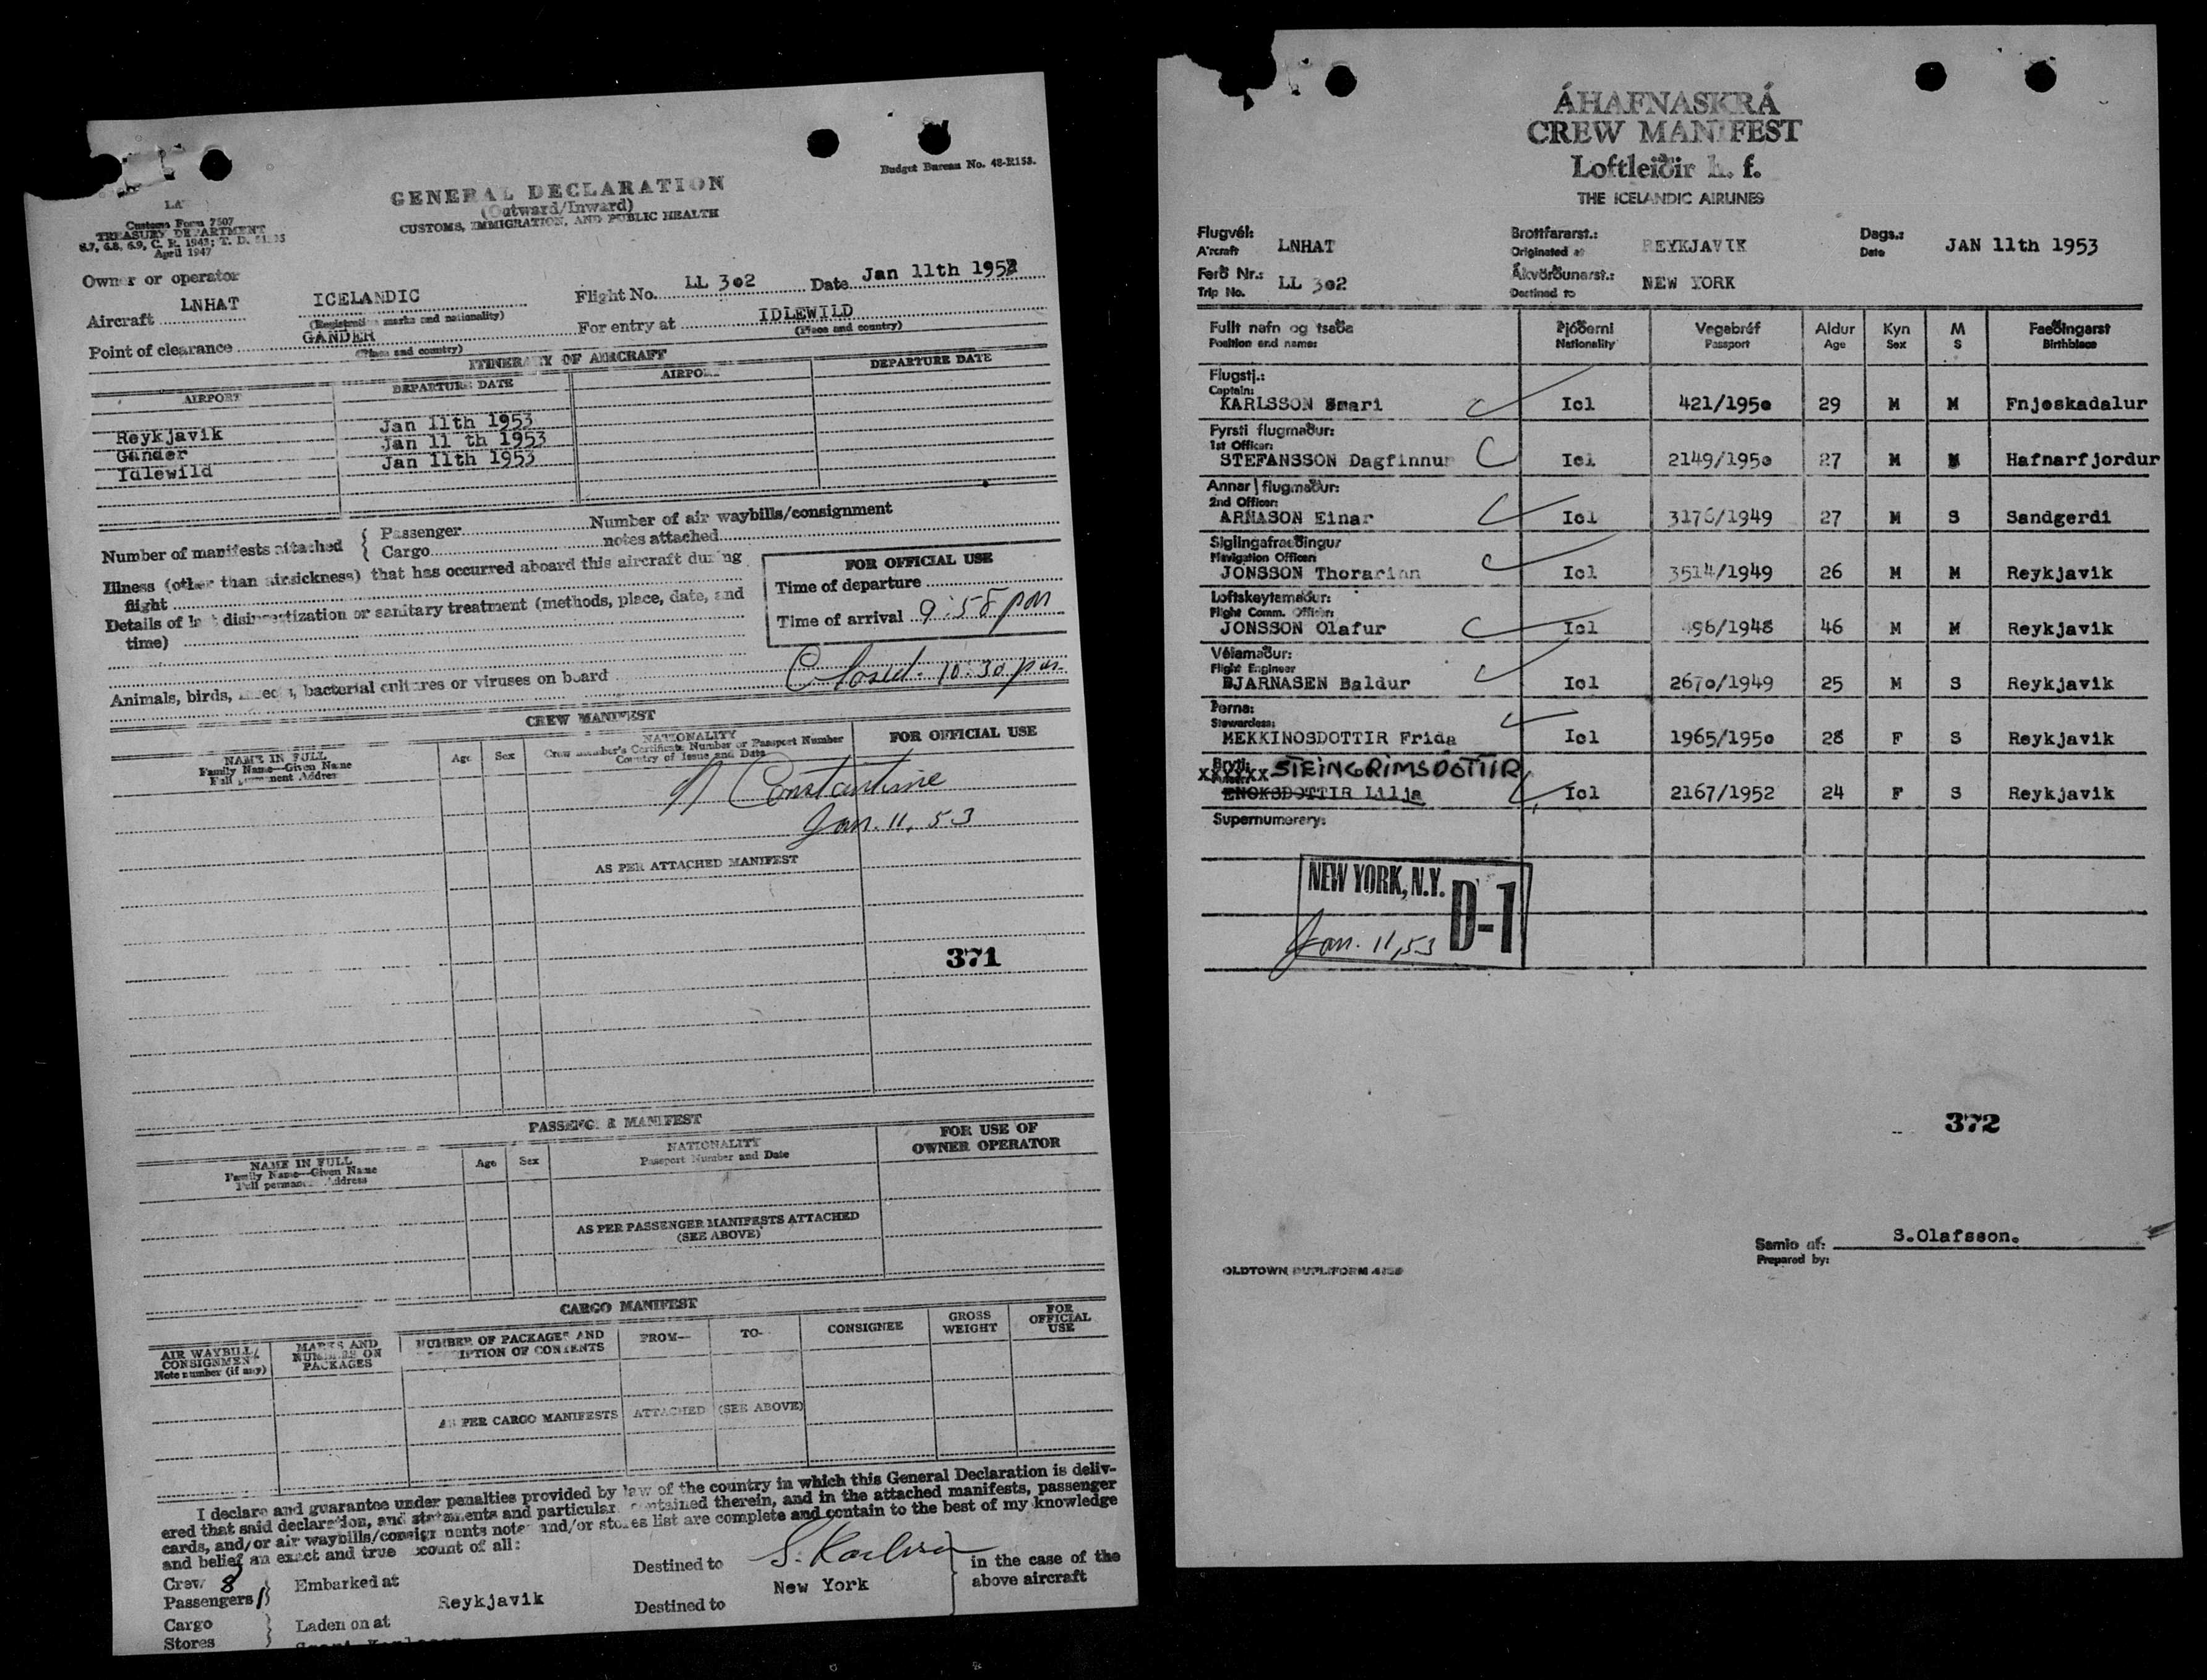 Budget Bureau No. 48-R153.
GENERAL DECLARATION
(Outward/Inward)
CUSTOMS, IMMIGRATION, AND PUBLIC HEALTH
Customs Form 7507
TREASURY DEPARTMENT
6.7, 6.8, 6.9, C. R. 1943; T. D.
April 1947
Owner or operator
Aircraft LNHAT ICELANDIC Flight No. LL 302 Date Jan 11th 1953
(Registration marks and nationality)
Point of clearance GANDER For entry at IDLEWILD
(Place and country) (Place and country)
ITINERARY OF AIRCRAFT
AIRPORT DEPARTURE DATE AIRPORT DEPARTURE DATE
Reykjavik Jan 11th 1953
Gander Jan 11 th 1953
Idlewild Jan 11th 1953
Number of manifests attached { Passenger Number of air waybills/consignment
Cargo notes attached
Illness (other than airsickness) that has occurred aboard this aircraft during
flight
Details of last disinsectization or sanitary treatment (methods, place, date, and
time)
FOR OFFICIAL USE
Time of departure
Time of arrival 9:58 pm
Closed. 10:30 pm
Animals, birds, insects, bacterial cultures or viruses on board
CREW MANIFEST
NAME IN FULL
Family Name—Given Name
Full permanent Address
Age Sex
NATIONALITY
Crew Member's Certificate Number or Passport Number
Country of Issue and Date
FOR OFFICIAL USE
Constantine
Jan. 11, 53
AS PER ATTACHED MANIFEST
371
PASSENGER MANIFEST
NAME IN FULL
Family Name—Given Name
Full permanent Address
Age Sex
NATIONALITY
Passport Number and Date
FOR USE OF
OWNER OPERATOR
AS PER PASSENGER MANIFESTS ATTACHED
(SEE ABOVE)
CARGO MANIFEST
AIR WAYBILL/
CONSIGNMENT
Note number (if any)
MARKS AND
NUMBERS ON
PACKAGES
NUMBER OF PACKAGES AND
DESCRIPTION OF CONTENTS
FROM—
TO—
CONSIGNEE
GROSS
WEIGHT
FOR
OFFICIAL
USE
AS PER CARGO MANIFESTS ATTACHED (SEE ABOVE)
I declare and guarantee under penalties provided by law of the country in which this General Declaration is deliv-
ered that said declaration, and statements and particulars contained therein, and in the attached manifests, passenger
cards, and/or air waybills/consignments notes and/or stores list are complete and contain to the best of my knowledge
and belief an exact and true account of all:
Crew 8
Passengers
Embarked at Reykjavik
Destined to New York
S. Karlsson
in the case of the
above aircraft
Cargo
Stores
Laden on at
Destined to
ÁHAFNASKRÁ
CREW MANIFEST
Loftleiðir h. f.
THE ICELANDIC AIRLINES
Flugvél:
Aircraft LNHAT
Brottfararst.:
Originated at REYKJAVIK
Dags.:
Date JAN 11th 1953
Ferð Nr.:
Trip No. LL 302
Ákvörðunarst.:
Destined to NEW YORK
Fullt nafn og staða
Position and name:
Þjóðerni
Nationality
Vegabréf
Passport
Aldur
Age
Kyn
Sex
M
S
Fæðingarst
Birthplace
Flugstj.:
Captain:
KARLSSON Smari Icl 421/1950 29 M M Fnjoskadalur
Fyrsti flugmaður:
1st Officer:
STEFANSSON Dagfinnur Icl 2149/1950 27 M M Hafnarfjordur
Annar flugmaður:
2nd Officer:
ARNASON Einar Icl 3176/1949 27 M S Sandgerdi
Siglingafræðingur
Navigation Officer:
JONSSON Thorarinn Icl 3514/1949 26 M M Reykjavik
Loftskeytamaður:
Flight Comm. Officer:
JONSSON Olafur Icl 496/1948 46 M M Reykjavik
Vélamaður:
Flight Engineer
BJARNASEN Baldur Icl 2670/1949 25 M S Reykjavik
Þerna:
Stewardess:
MEKKINOSDOTTIR Frida Icl 1965/1950 28 F S Reykjavik
Bryti:
XXXXXX STEINGRIMSDOTTIR
ENOKSDOTTIR Lilja Icl 2167/1952 24 F S Reykjavik
Supernumerary:
NEW YORK, N.Y.
D-1
Jan. 11, 53
372
Samið af: S.Olafsson.
Prepared by:
OLDTOWN DUPLIFORM